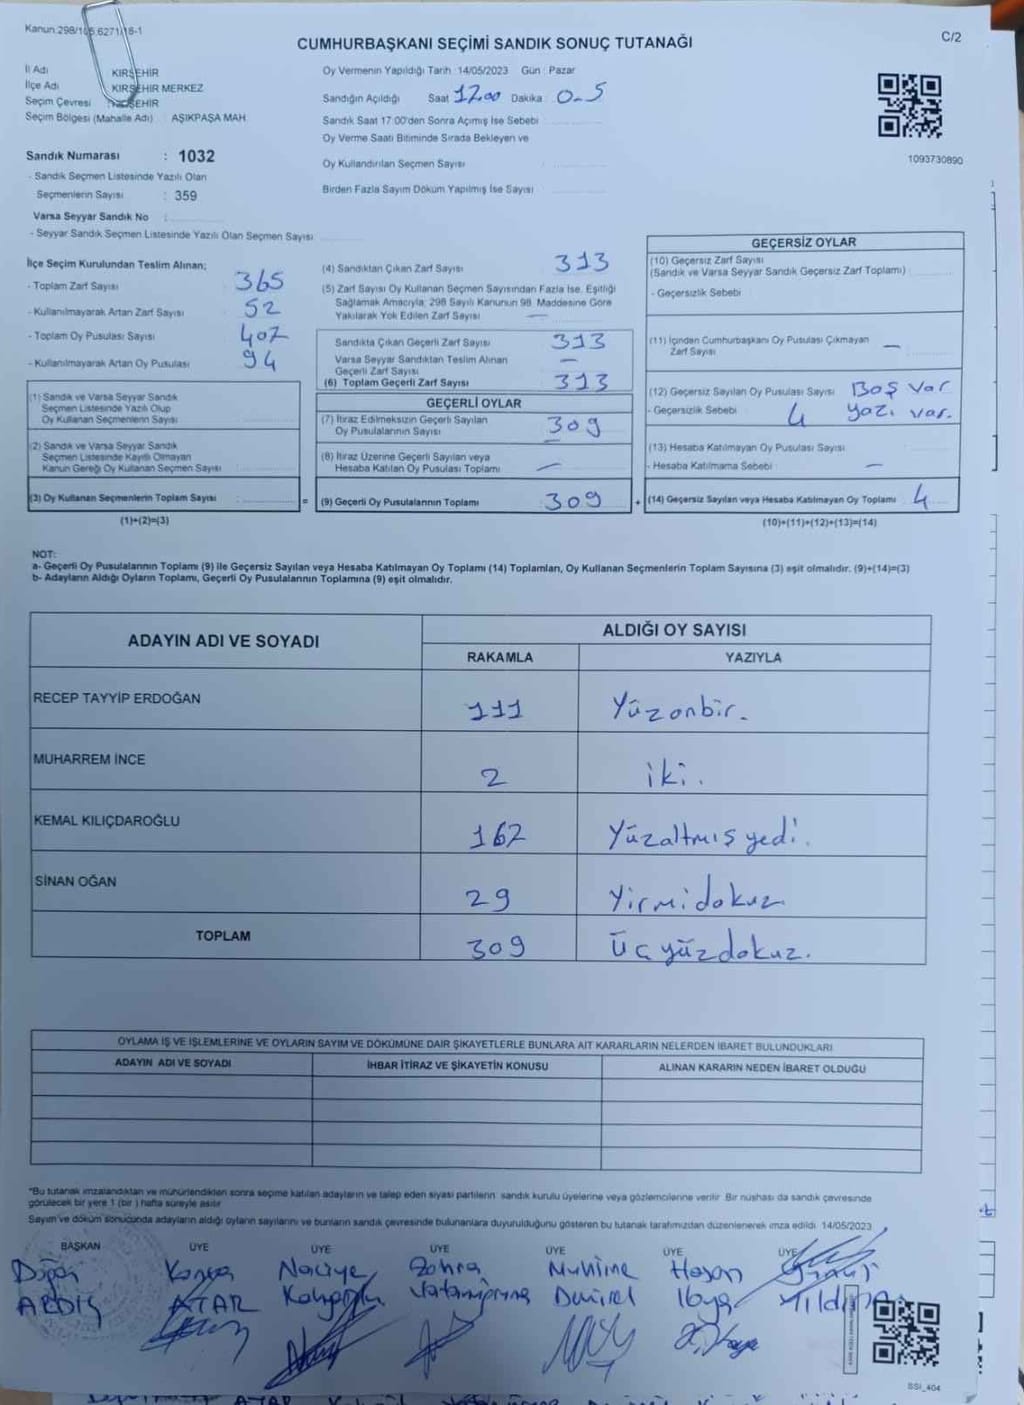 Kanun:298/105,6271/18-1
C/2
CUMHURBAŞKANI SEÇİMİ SANDIK SONUÇ TUTANAĞI
İl Adı KIRŞEHİR
İlçe Adı KIRŞEHİR MERKEZ
Seçim Çevresi KIRŞEHİR
Seçim Bölgesi (Mahalle Adı) : AŞIKPAŞA MAH.
Sandık Numarası : 1032
- Sandık Seçmen Listesinde Yazılı Olan
Seçmenlerin Sayısı : 359
Varsa Seyyar Sandık No :
- Seyyar Sandık Seçmen Listesinde Yazılı Olan Seçmen Sayısı
Oy Vermenin Yapıldığı Tarih :14/05/2023 Gün : Pazar
Sandığın Açıldığı Saat 17.00 Dakika : 0-5
Sandık Saat 17:00'den Sonra Açımış İse Sebebi :
Oy Verme Saati Bitiminde Sırada Bekleyen ve
Oy Kullandırılan Seçmen Sayısı :
Birden Fazla Sayım Döküm Yapılmış İse Sayısı
1093730890
İlçe Seçim Kurulundan Teslim Alınan;
- Toplam Zarf Sayısı 365
- Kullanılmayarak Artan Zarf Sayısı 52
- Toplam Oy Pusulası Sayısı 407
- Kullanılmayarak Artan Oy Pusulası 94
(1) Sandık ve Varsa Seyyar Sandık
Seçmen Listesinde Yazılı Olup
Oy Kullanan Seçmenlerin Sayısı
(2) Sandık ve Varsa Seyyar Sandık
Seçmen Listesinde Kayıtlı Olmayan
Kanun Gereği Oy Kullanan Seçmen Sayısı
(3) Oy Kullanan Seçmenlerin Toplam Sayısı :
(1)+(2)=(3)
(4) Sandıktan Çıkan Zarf Sayısı 313
(5) Zarf Sayısı Oy Kullanan Seçmen Sayısından Fazla İse, Eşitliği
Sağlamak Amacıyla; 298 Sayılı Kanunun 98. Maddesine Göre
Yakılarak Yok Edilen Zarf Sayısı —
Sandıkta Çıkan Geçerli Zarf Sayısı 313
Varsa Seyyar Sandıktan Teslim Alınan
Geçerli Zarf Sayısı —
(6) Toplam Geçerli Zarf Sayısı 313
GEÇERLİ OYLAR
(7) İtiraz Edilmeksizin Geçerli Sayılan
Oy Pusulalarının Sayısı 309
(8) İtiraz Üzerine Geçerli Sayılan veya
Hesaba Katılan Oy Pusulası Toplamı —
= (9) Geçerli Oy Pusulalarının Toplamı 309
GEÇERSİZ OYLAR
(10) Geçersiz Zarf Sayısı
(Sandık ve Varsa Seyyar Sandık Geçersiz Zarf Toplamı)
- Geçersizlik Sebebi :
(11) İçinden Cumhurbaşkanı Oy Pusulası Çıkmayan
Zarf Sayısı —
(12) Geçersiz Sayılan Oy Pusulası Sayısı Boş var
- Geçersizlik Sebebi 4 yazı var.
(13) Hesaba Katılmayan Oy Pusulası Sayısı
- Hesaba Katılmama Sebebi —
+ (14) Geçersiz Sayılan veya Hesaba Katılmayan Oy Toplamı 4
(10)+(11)+(12)+(13)=(14)
NOT:
a- Geçerli Oy Pusulalarının Toplamı (9) ile Geçersiz Sayılan veya Hesaba Katılmayan Oy Toplamı (14) Toplamları, Oy Kullanan Seçmenlerin Toplam Sayısına (3) eşit olmalıdır. (9)+(14)=(3)
b- Adayların Aldığı Oyların Toplamı, Geçerli Oy Pusulalarının Toplamına (9) eşit olmalıdır.
ADAYIN ADI VE SOYADI
ALDIĞI OY SAYISI
RAKAMLA YAZIYLA
RECEP TAYYİP ERDOĞAN 111 Yüzonbir.
MUHARREM İNCE 2 iki.
KEMAL KILIÇDAROĞLU 167 Yüzaltmış yedi.
SİNAN OĞAN 29 Yirmidokuz
TOPLAM 309 Üçyüzdokuz.
OYLAMA İŞ VE İŞLEMLERİNE VE OYLARIN SAYIM VE DÖKÜMÜNE DAİR ŞİKAYETLERLE BUNLARA AİT KARARLARIN NELERDEN İBARET BULUNDUKLARI
ADAYIN ADI VE SOYADI İHBAR İTİRAZ VE ŞİKAYETİN KONUSU ALINAN KARARIN NEDEN İBARET OLDUĞU
*Bu tutanak imzalandıktan ve mühürlendikten sonra seçime katılan adayların ve talep eden siyasi partilerin sandık kurulu üyelerine veya gözlemcilerine verilir. Bir nüshası da sandık çevresinde
görülecek bir yere 1 (bir ) hafta süreyle asılır
Sayım ve döküm sonucunda adayların aldığı oyların sayılarını ve bunların sandık çevresinde bulunanlara duyurulduğunu gösteren bu tutanak tarafımızdan düzenlenerek imza edildi. 14/05/2023
BAŞKAN ÜYE ÜYE ÜYE ÜYE ÜYE ÜYE
Doğan Naciye Zohra Muhime Hasan
ARDIŞ ATAR Demirel Yıldırım
SSİ_404